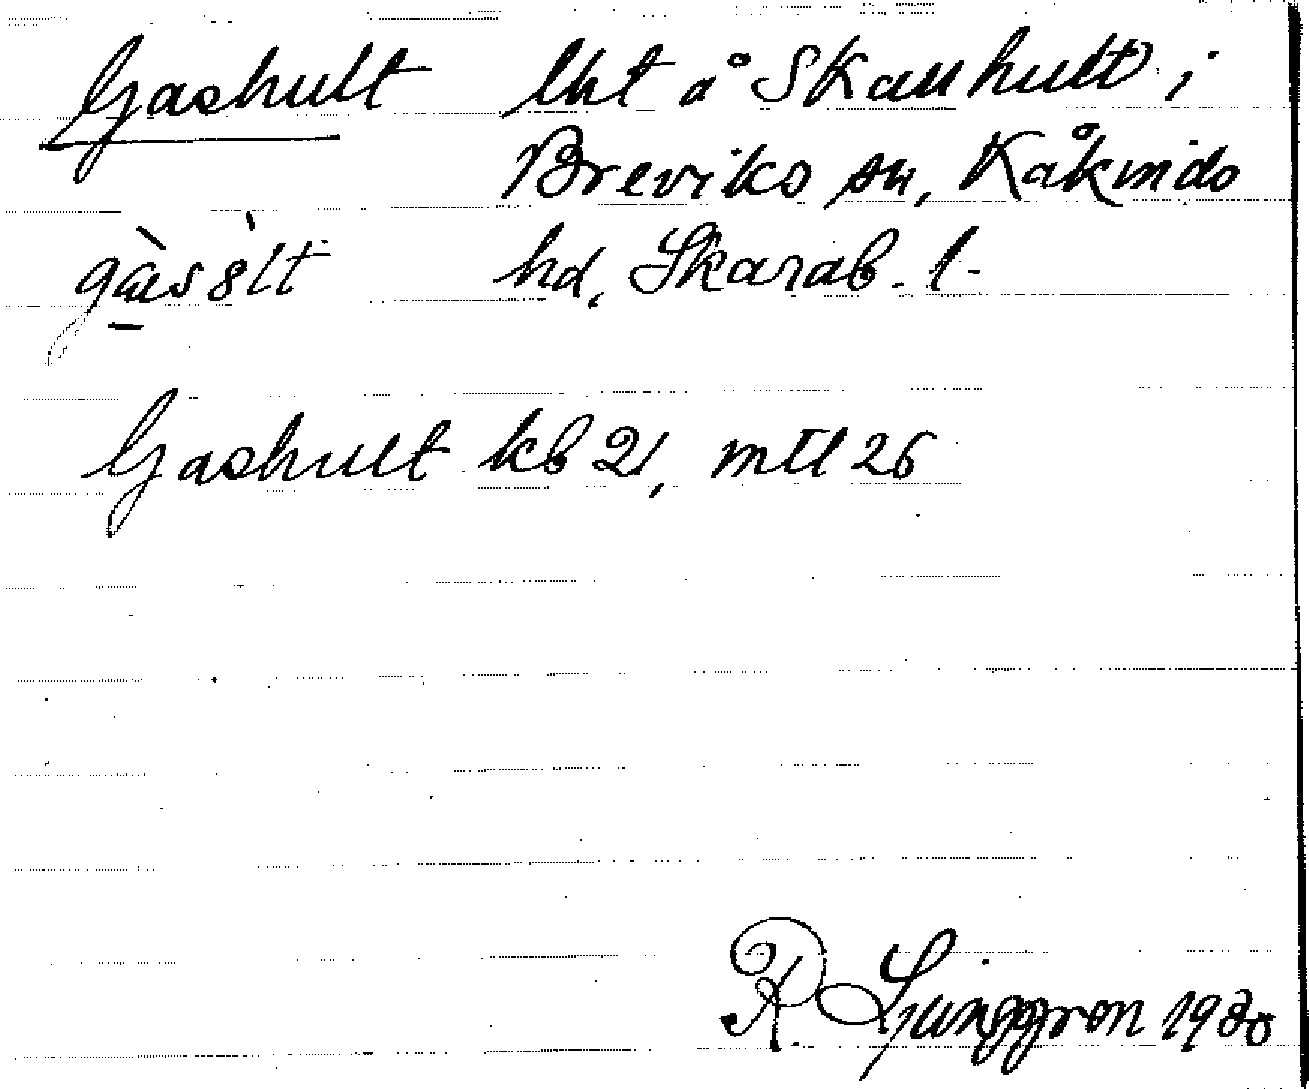 Gashult lht å Skanhult i
Breviks sn, Kåkinds
gàsèlt hd, Skarab. l.
Gashult kb 21, mtl 26
R. Ljunggren 1930